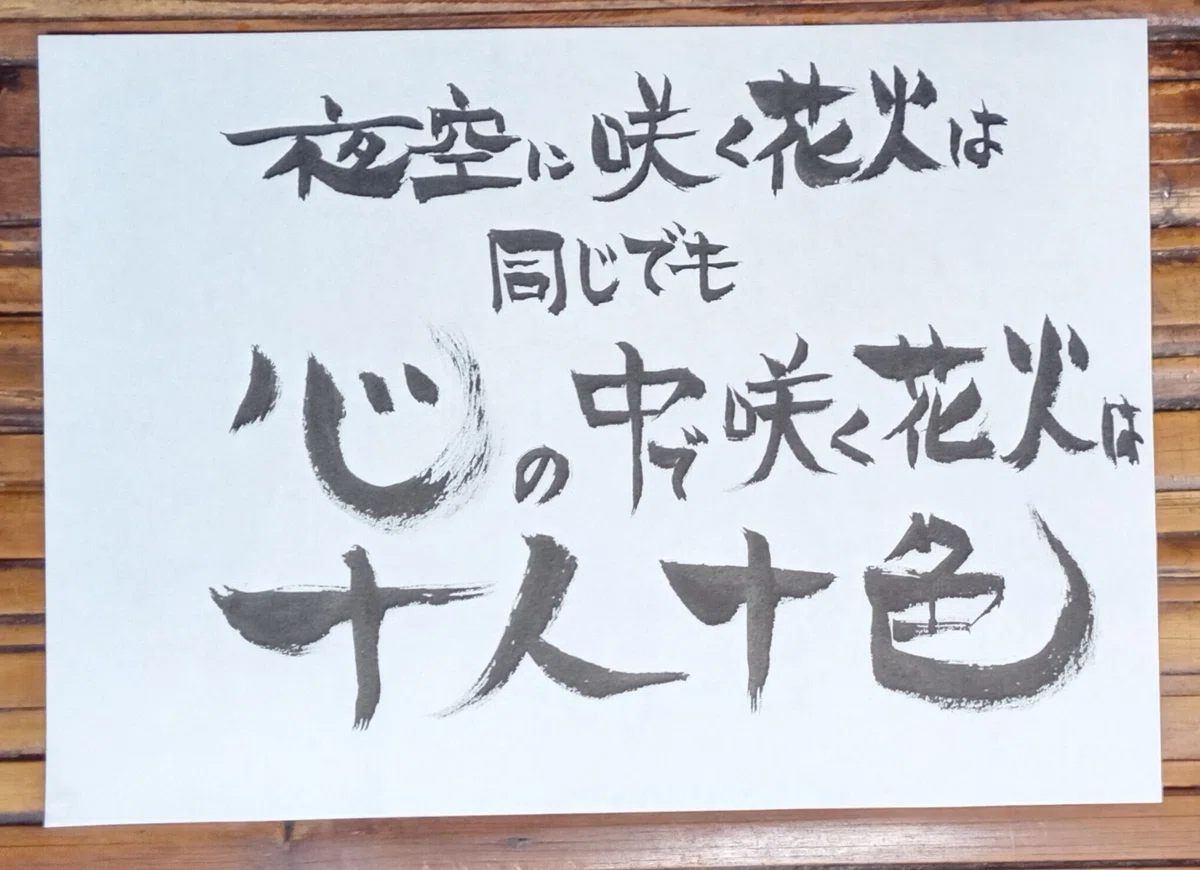 夜空に咲く花火は
同じでも
心の中で咲く花火は
十人十色